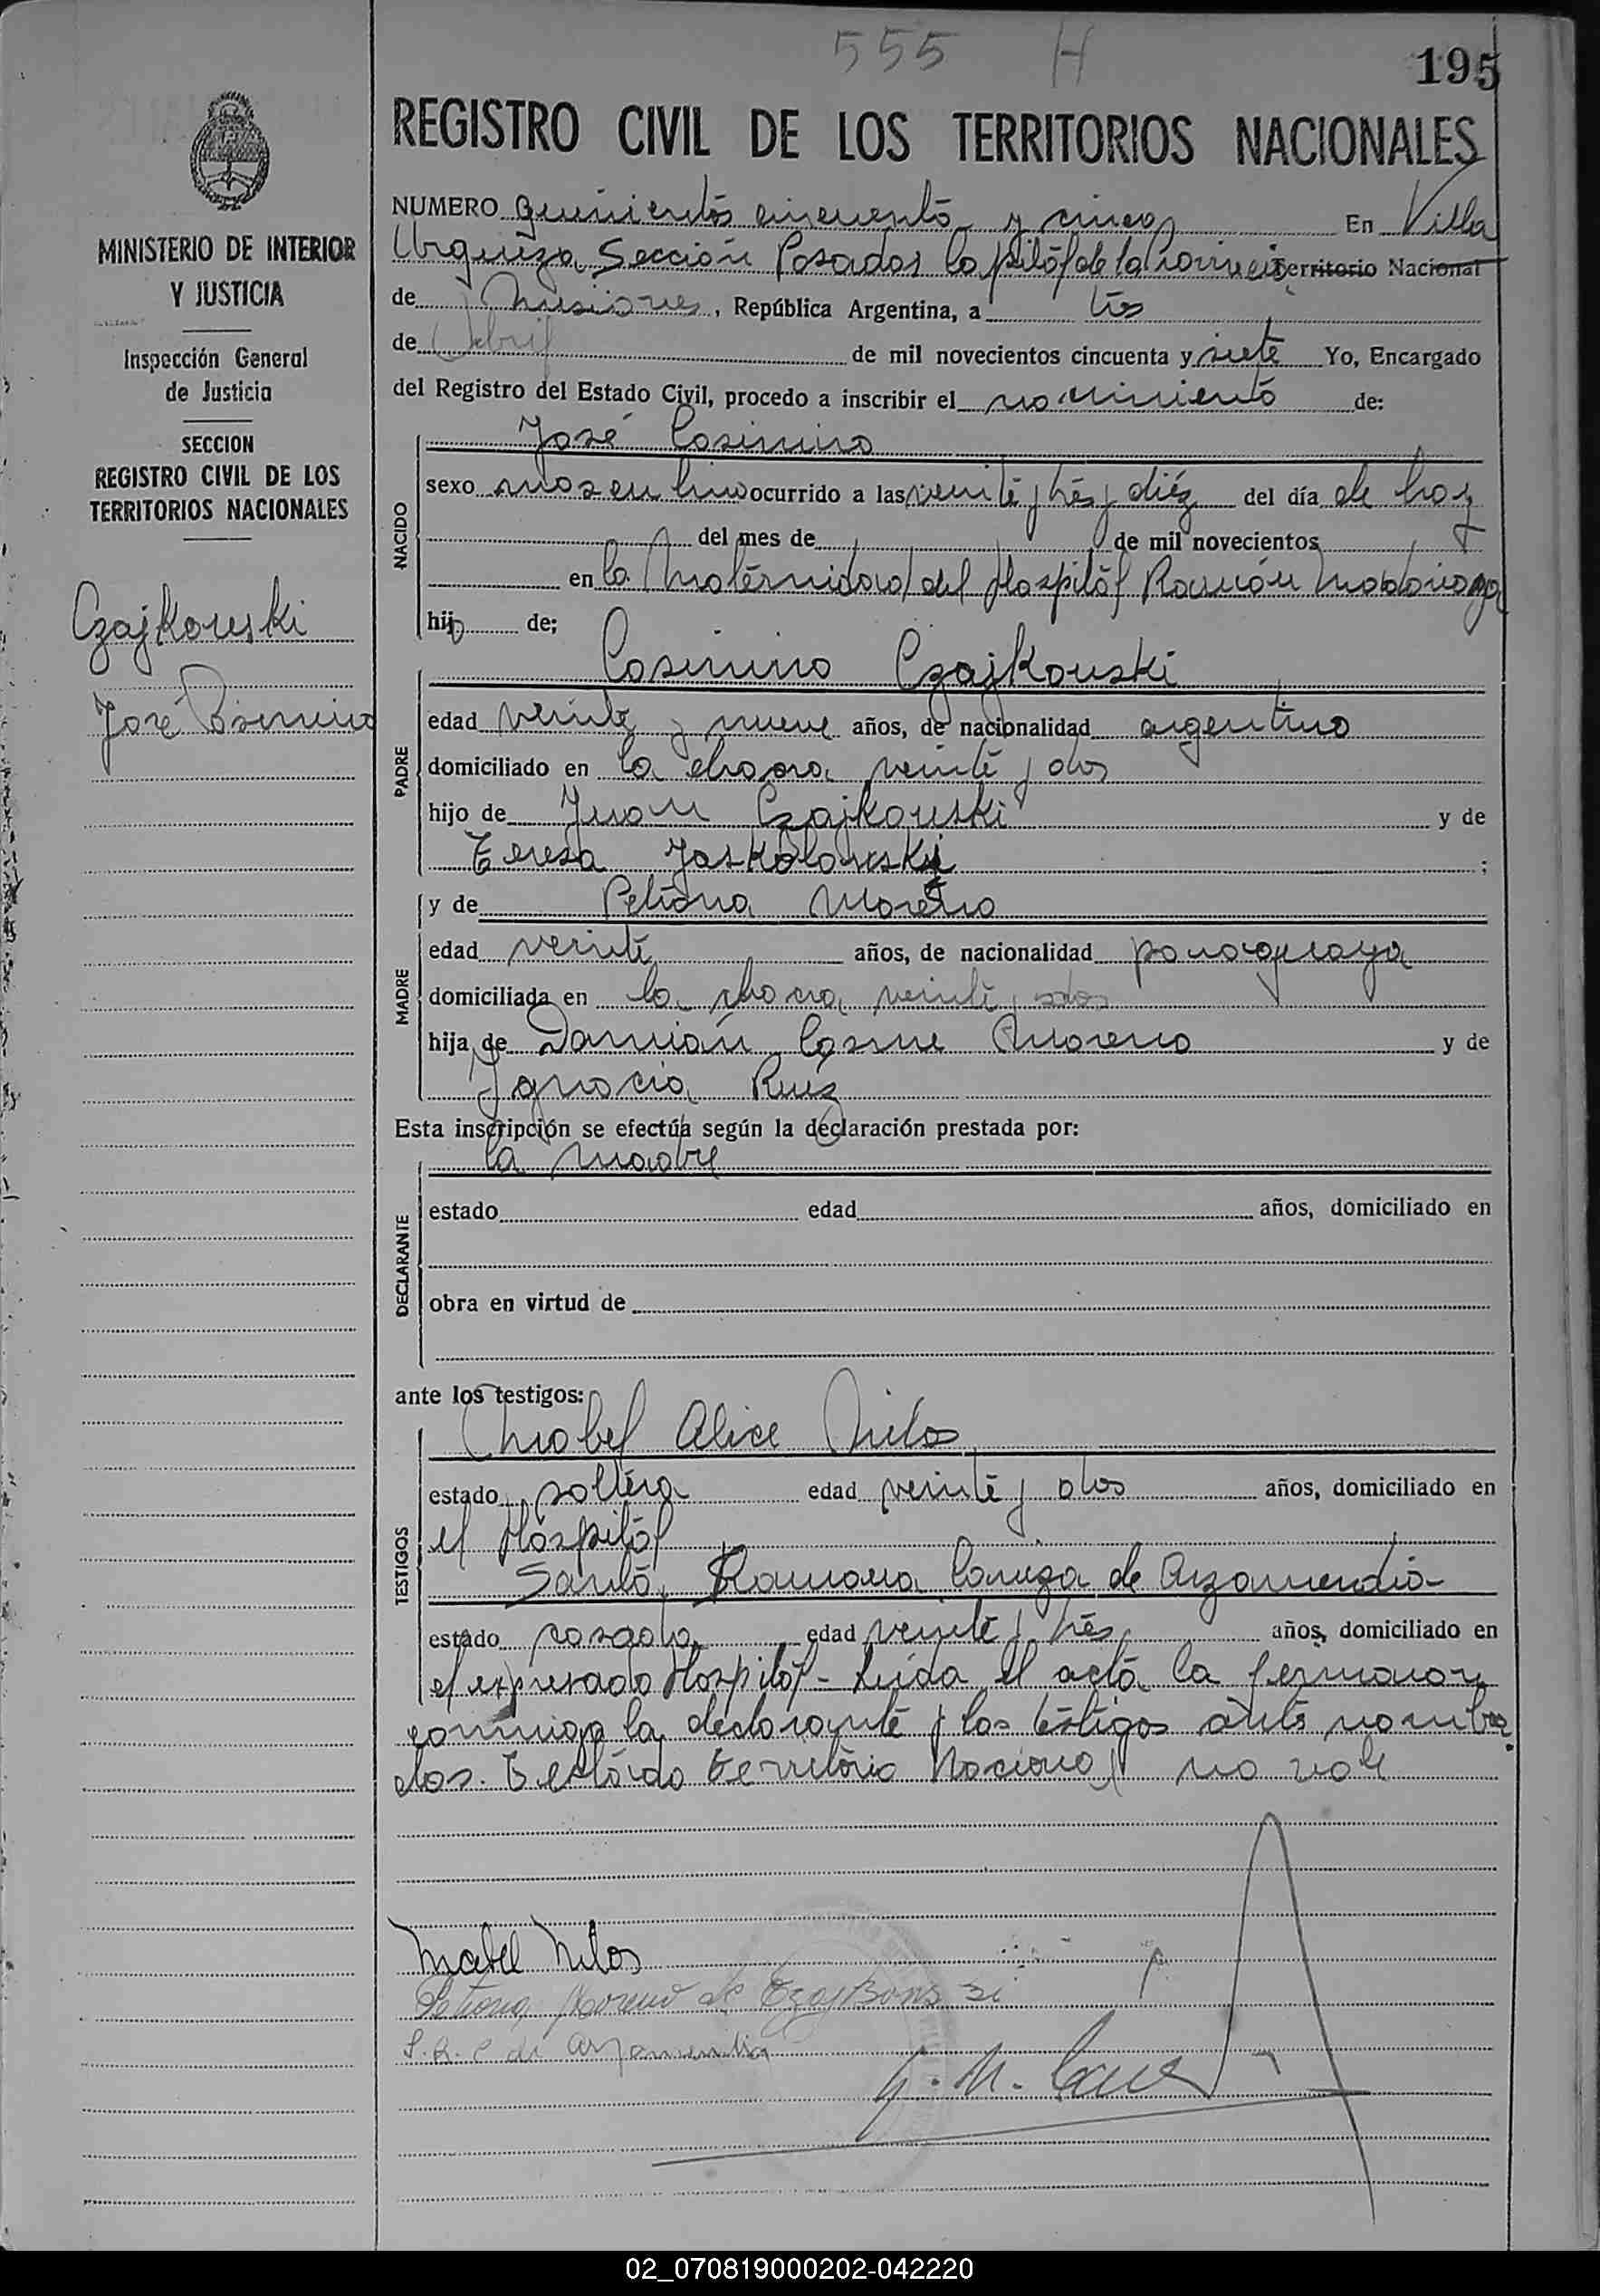 555 H
195
REGISTRO CIVIL DE LOS TERRITORIOS NACIONALES
MINISTERIO DE INTERIOR
Y JUSTICIA
Inspección General
de Justicia
SECCION
REGISTRO CIVIL DE LOS
TERRITORIOS NACIONALES
Czajkouski
José Cosimiro
NUMERO quinientos cincuenta y cinco En Villa
Urquiza Sección Posadas Capital de la Provincia Territorio Nacional
de Misiones, República Argentina, a tres
de Abril de mil novecientos cincuenta y siete Yo, Encargado
del Registro del Estado Civil, procedo a inscribir el nacimiento de:
José Cosimiro
NACIDO
sexo masculino ocurrido a las veinte y tres y diéz del día de hoy
del mes de de mil novecientos
en la Maternidad del Hospital Ramón Madariaga
hijo de;
Cosimiro Czajkouski
PADRE
edad veinte y nueve años, de nacionalidad argentino
domiciliado en la chacra veinte y dos
hijo de Juan Czajkouski y de
Teresa Jaskolouski ;
y de Petrona Moreno
MADRE
edad veinte años, de nacionalidad paraguaya
domiciliada en la chacra veinte y dos
hija de Damián Cosme Moreno y de
Ignacia Ruiz
Esta inscripción se efectúa según la declaración prestada por:
la madre
DECLARANTE
estado edad años, domiciliado en
obra en virtud de
ante los testigos:
Mabel Alice Milos
TESTIGOS
estado soltera edad veinte y dos años, domiciliado en
el Hospital
Santa Ramona de Arzamendia-
estado casada edad veinte y tres años, domiciliado en
el expresado Hospital- Leida el acta la firmaron
conmigo la declarante y los testigos ante nombra
dos. Testado Territorio Nacional no vale
Mabel Milos
Petrona Moreno de Czajkouski
S. R. C de Arzamendia
G. M.
02_070819000202-042220